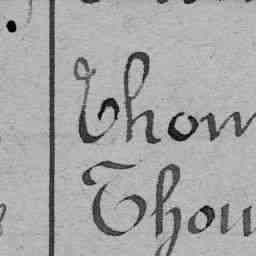 Thom
Thou